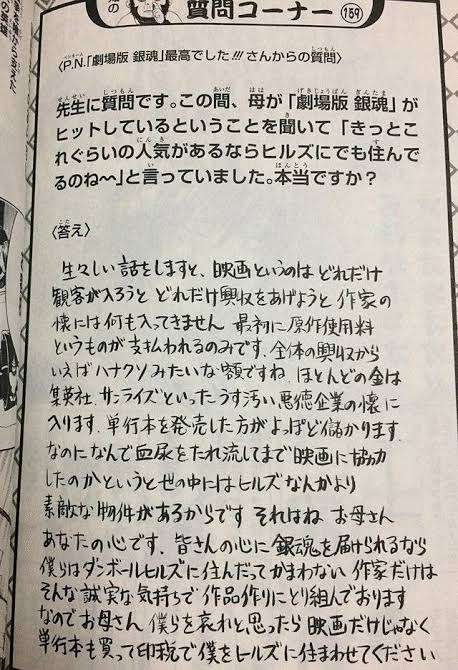 質問コーナー 159
〈P.N.「劇場版 銀魂」最高でした!!! さんからの質問〉
先生に質問です。この間、母が「劇場版 銀魂」が
ヒットしているということを聞いて「きっとこ
れぐらいの人気があるならヒルズにでも住んで
るのね〜」と言っていました。本当ですか？
〈答え〉
生々しい話をしますと、映画というのは どれだけ
観客が入ろうと どれだけ興収をあげようと 作家の
懐には何も入ってきません 最初に原作使用料
というものが支払われるのみです. 全体の興収から
いえばハナクソみたいな額ですね. ほとんどの金は
集英社、サンライズといった うす汚い悪徳企業の懐に
入ります. 単行本を発売した方がよっぽど儲かります.
なのになんで血尿をたれ流してまで映画に協力
したのかというと世の中にはヒルズなんかより
素敵な物件があるからです それはね お母さん
あなたの心です. 皆さんの心に 銀魂を届けられるなら
僕らはダンボールヒルズに住んだってかまわない 作家だけは
そんな誠実な気持ちで 作品作りにとり組んでおります
なのでお母さん 僕らを哀れと思ったら映画だけじゃなく
単行本も買って印税で僕をヒルズに住まわせてください